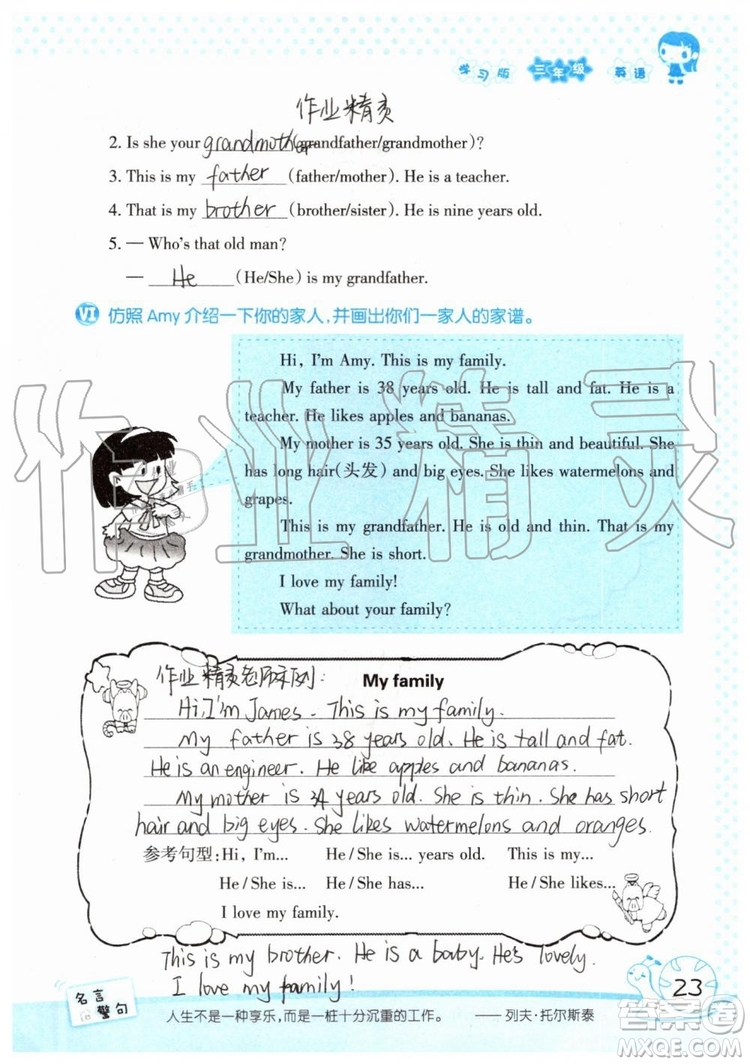 学习版 三年级 英语
作业精灵
2. Is she your grandmother (grandfather/grandmother)?
3. This is my father (father/mother). He is a teacher.
4. That is my brother (brother/sister). He is nine years old.
5. — Who's that old man?
— He (He/She) is my grandfather.
Ⅵ 仿照 Amy 介绍一下你的家人,并画出你们一家人的家谱。
Hi, I'm Amy. This is my family.
My father is 38 years old. He is tall and fat. He is a
teacher. He likes apples and bananas.
My mother is 35 years old. She is thin and beautiful. She
has long hair(头发) and big eyes. She likes watermelons and
grapes.
This is my grandfather. He is old and thin. That is my
grandmother. She is short.
I love my family!
What about your family?
作业精灵
作业精灵老师示例:
My family
Hi, I'm James. This is my family.
My father is 38 years old. He is tall and fat.
He is an engineer. He like apples and bananas.
My mother is 34 years old. She is thin. She has short
hair and big eyes. She likes watermelons and oranges.
参考句型: Hi, I'm... He/She is... years old. This is my...
He/She is... He/She has... He/She likes...
I love my family.
This is my brother. He is a baby. He's lovely.
I love my family!
名言警句
人生不是一种享乐,而是一桩十分沉重的工作。 ——列夫·托尔斯泰
23
答案圈
MXQE.COM